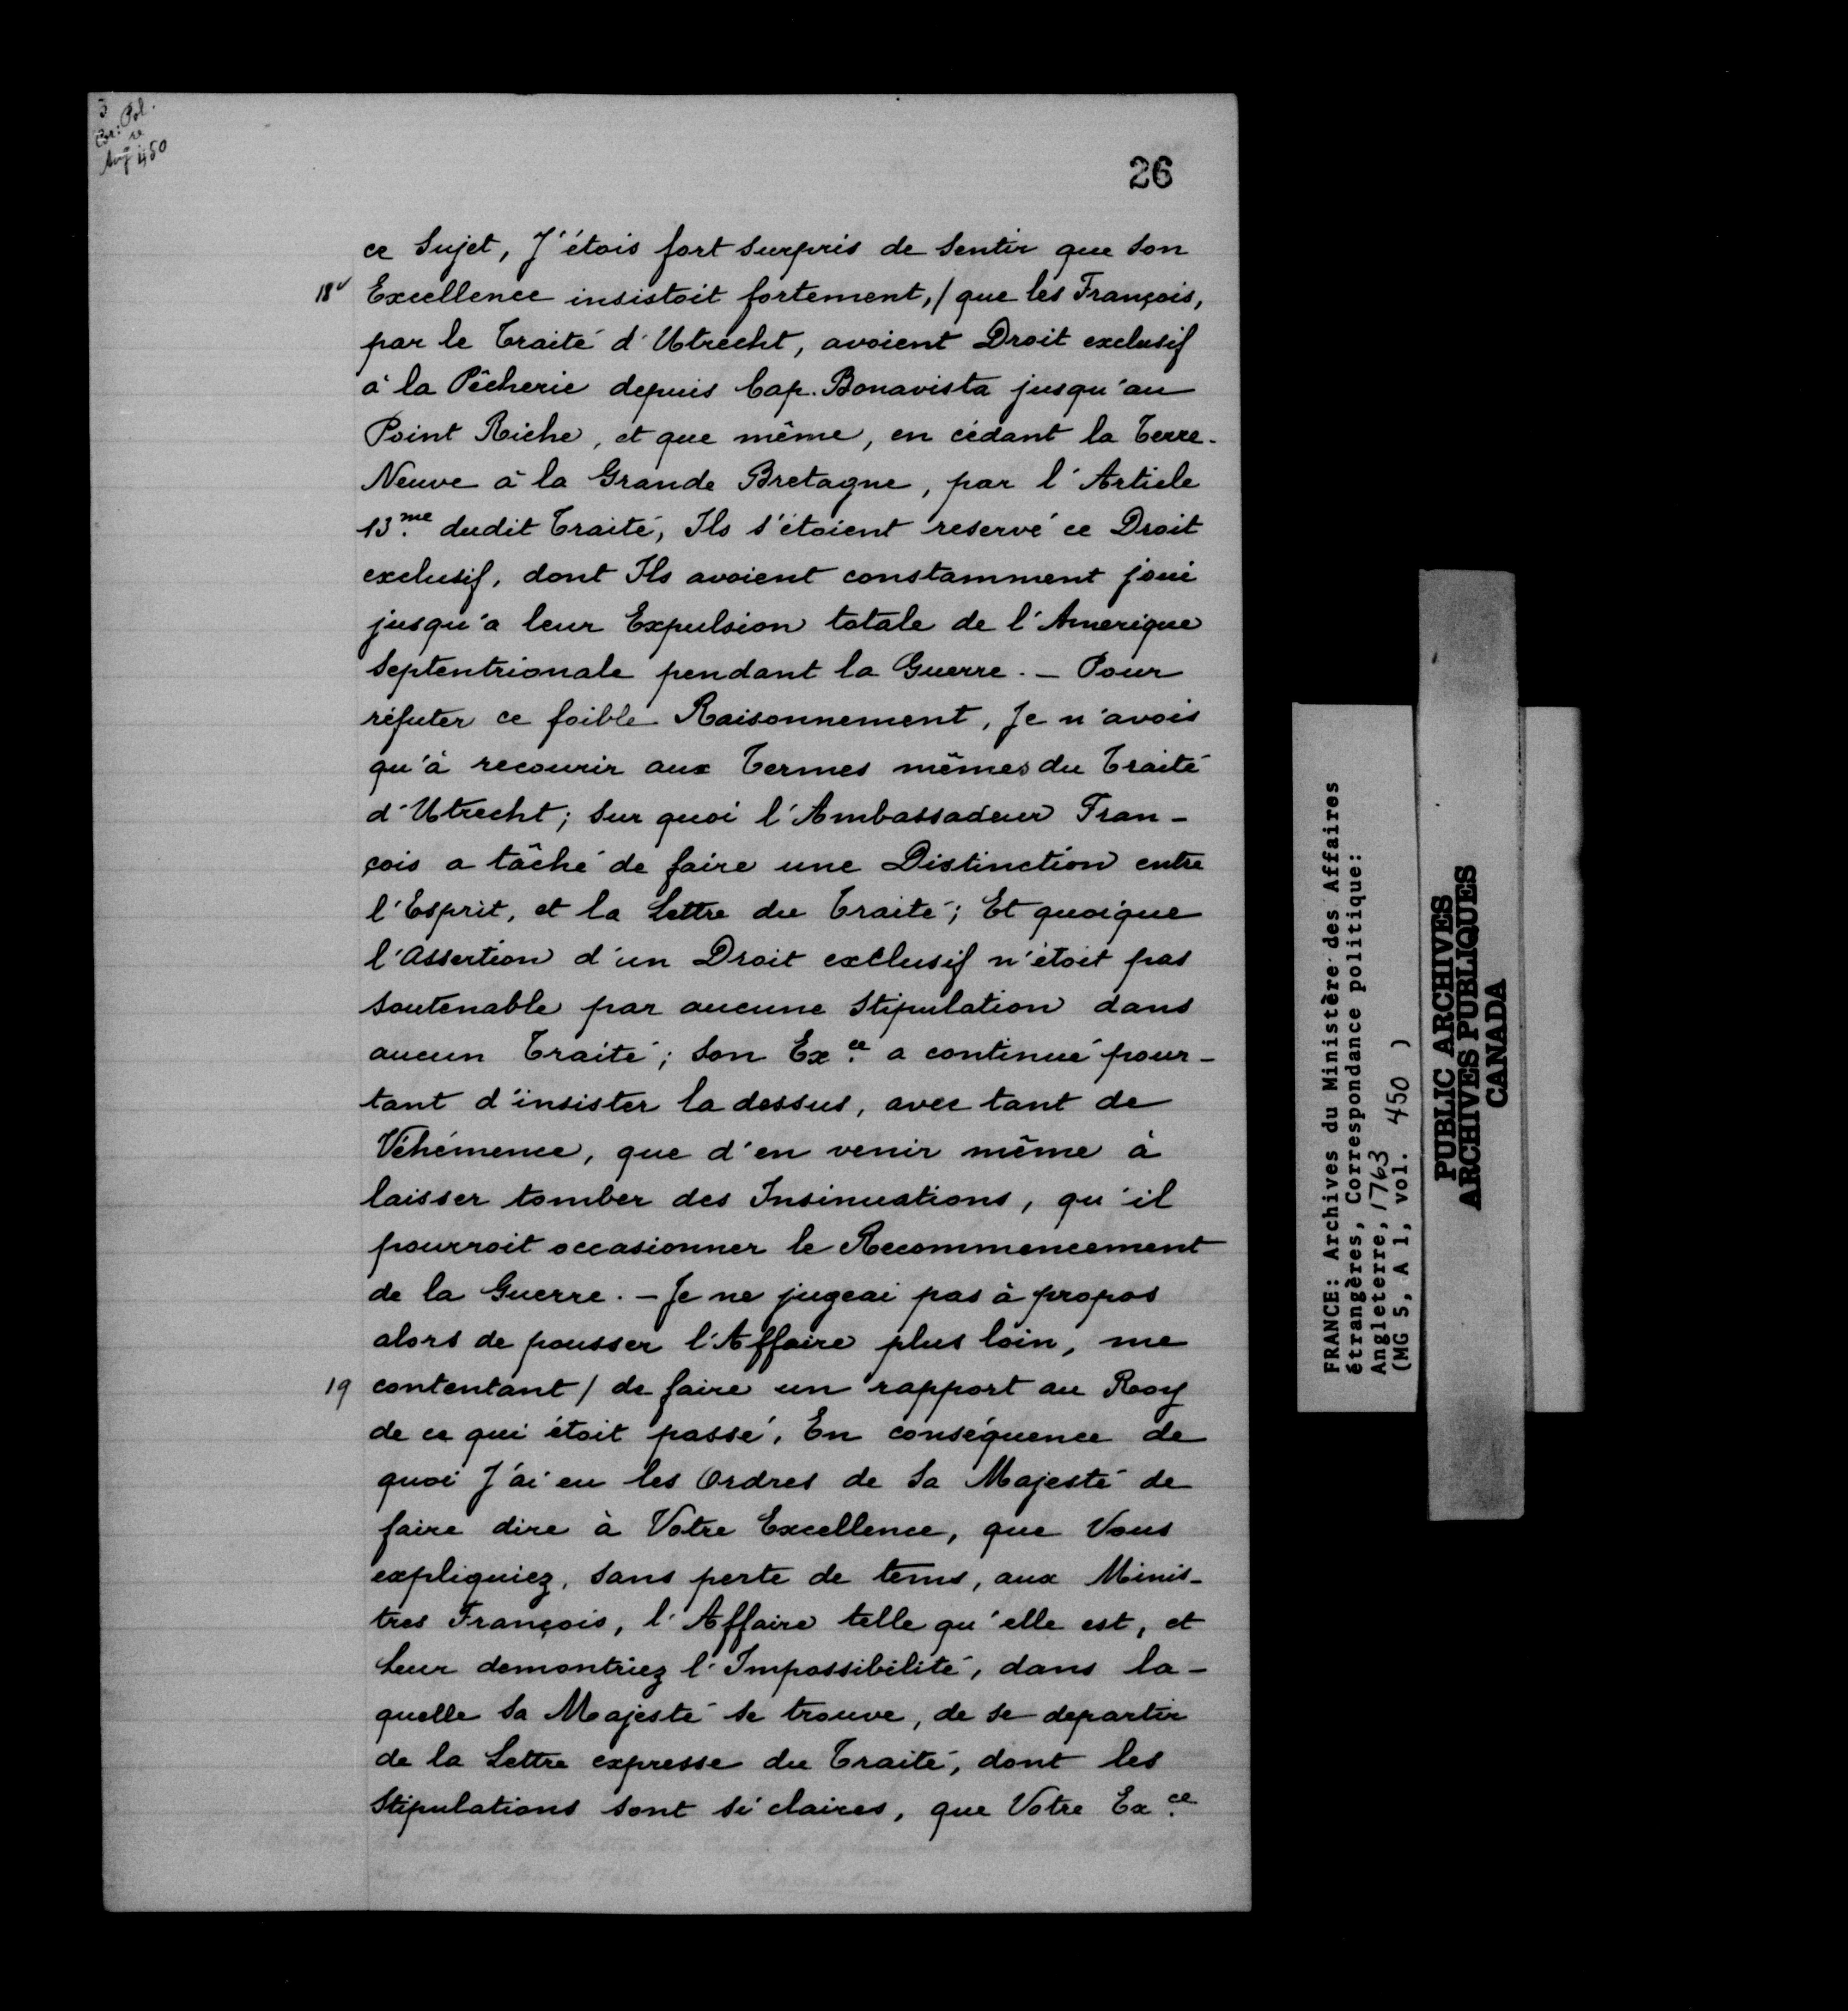 3
Cor: Pol.
re
Ang 450
26
ce Sujet, J'étois fort surpris de sentir que son
18v Excellence insistoit fortement, / que les François,
par le Traité d'Utrecht, avoient Droit exclusif
à la Pêcherie depuis Cap. Bonavista jusqu'au
Point Riche, et que même, en cédant la Terre-
Neuve à la Grande Bretagne, par l'Article
13.me dudit Traité, Ils s'étoient reservé ce Droit
exclusif, dont Ils avoient constamment joui
jusqu'a leur Expulsion totale de l'Amerique
Septentrionale pendant la Guerre. — Pour
réfuter ce foible Raisonnement, Je n'avois
qu'à recourir aux Termes mêmes du Traité
d'Utrecht; sur quoi l'Ambassadeur Fran-
çois a tâché de faire une Distinction entre
l'Esprit, et la Lettre du Traité; Et quoique
l'Assertion d'un Droit exclusif n'étoit pas
soutenable par aucune Stipulation dans
aucun Traité; Son Ex.ce a continué pour-
tant d'insister la dessus, avec tant de
Véhémence, que d'en venir même à
laisser tomber des Insinuations, qu'il
pourroit occasionner le Recommencement
de la Guerre. — Je ne jugeai pas à propos
alors de pousser l'Affaire plus loin, me
19 contentant / de faire un rapport au Roy
de ce qui étoit passé. En conséquence de
quoi J'ai eu les Ordres de Sa Majesté de
faire dire à Votre Excellence, que Vous
expliquiez, sans perte de tems, aux Minis-
tres François, l'Affaire telle qu'elle est, et
leur demontriez l'Impossibilité, dans la-
quelle Sa Majesté se trouve, de se departir
de la Lettre expresse du Traité, dont les
Stipulations sont si claires, que Votre Ex.ce
FRANCE: Archives du Ministère des Affaires
étrangères, Correspondance politique:
Angleterre, 1763
(MG 5, A 1, vol. 450 )
PUBLIC ARCHIVES
ARCHIVES PUBLIQUES
CANADA